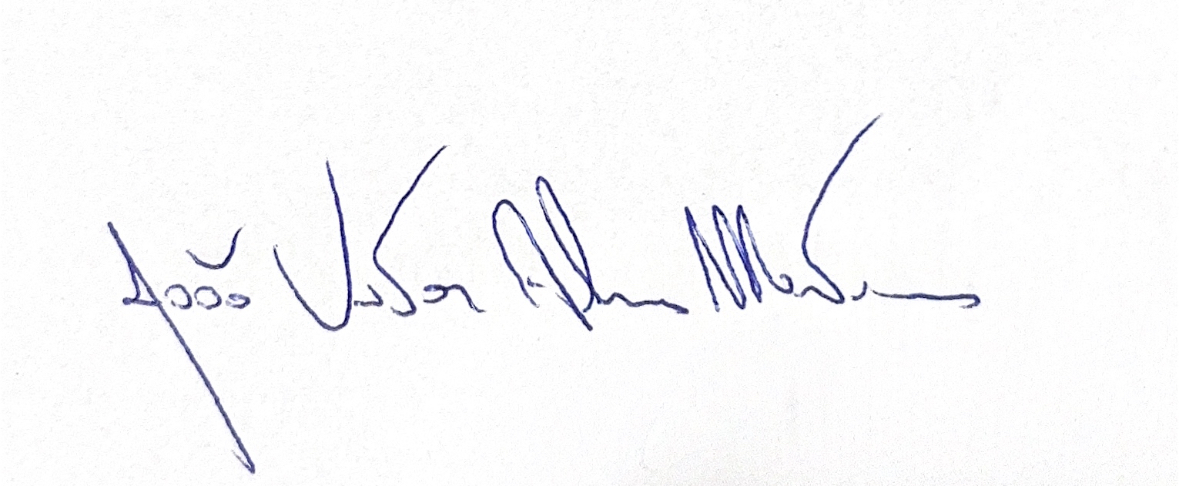 João Victor Alves Martins